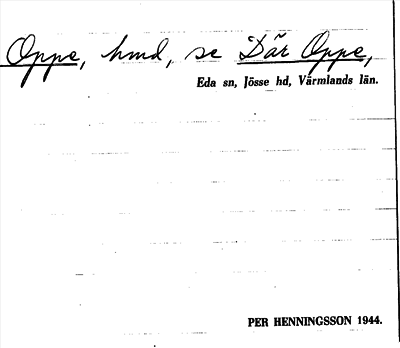 Oppe, hmd, se Där Oppe,
Eda sn, Jösse hd, Värmlands län.
PER HENNINGSSON 1944.